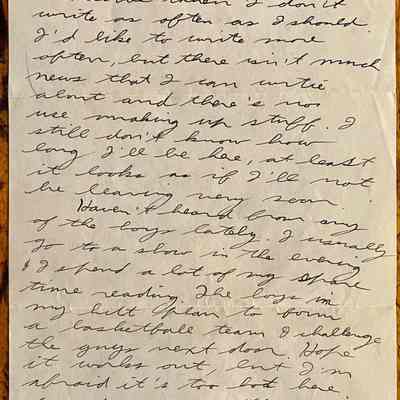 I don't
write as often as I should.
I'd like to write more
often, but there isn't much
news that I can wrtie
about and there's no
use making up stuff. I
still don't know how
long I'll be here, at least
it looks as if I'll not
be leaving very soon.
Haven't heard from any
of the boys lately. I usually
go to a show in the evening
& I spend a lot of my spare
time reading. The boys in
my hut plan to form
a basketball team & challenge
the guys next door. Hope
it works out, but I'm
afraid it's too hot here.